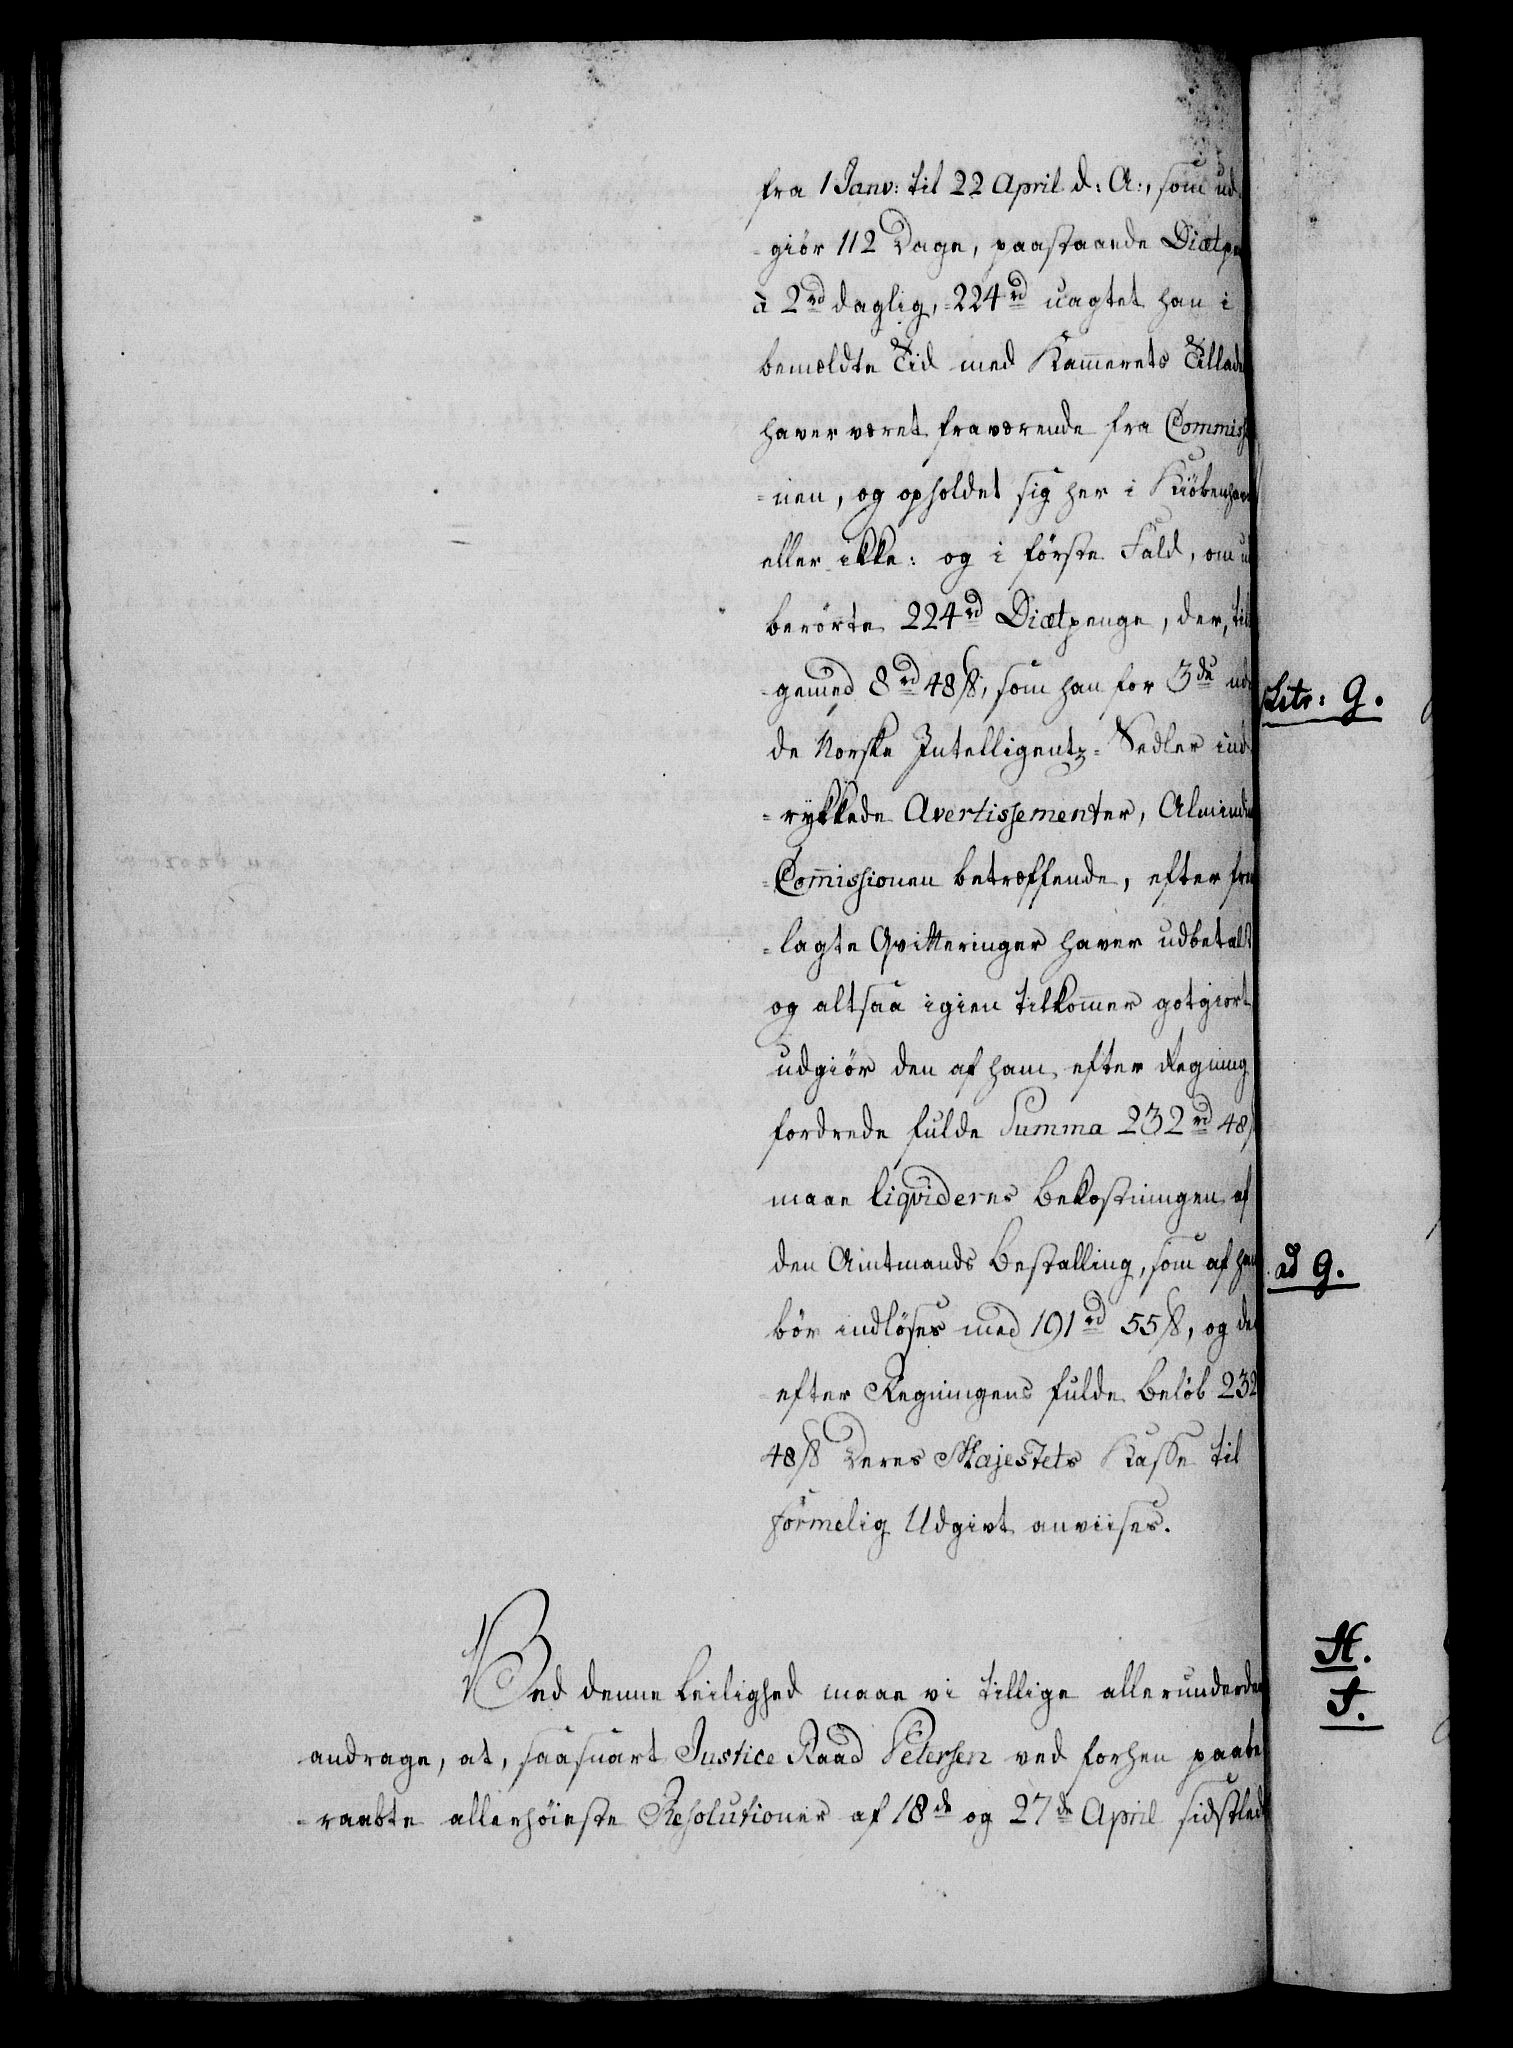 fra 1 Janv: til 22 April d: A:, som ud-
-giör 112 Dage, paastaaende Diætpen
à 2rd daglig, 224rd uagtet han i
bemældte Tid med Kammerets Tillade
haver været fraværende fra Commissi
-nen, og opholdet sig her i Kiöbenhavn
eller ikke: og i förste Fald, om
berörte 224rd Diætpenge, der, til
-gemed 8rd 48 ß, som han for 3de ud
de Norske Intelligentz-Sedler ind
-rykkede Avertissementer, Alminding
-Commissionen betræffende, efter frem
-lagte Qvitteringer haver udbetalt
og altsaa igien tilkommer gotgiort
udgiör den af ham efter Regning
fordrede fulde Summa 232rd 48 ß
maae liqvideres bekostningen af
den Amtmands Bestalling, som af ham
bör indlöses med 191rd 55 ß, og de
efter Regningens fulde Belöb 232
48 ß Deres Majestets Kasse til
formelig Udgivt anviises.
Ved denne Leilighed maae vi tillige allerunderda
andrage, at, saasnart Justice Raad Petersen ved forhen paabe
-raabte allerhöieste Resolutioner af 18de og 27de April sidstled
Litr: G.
ad G.
H.
J.